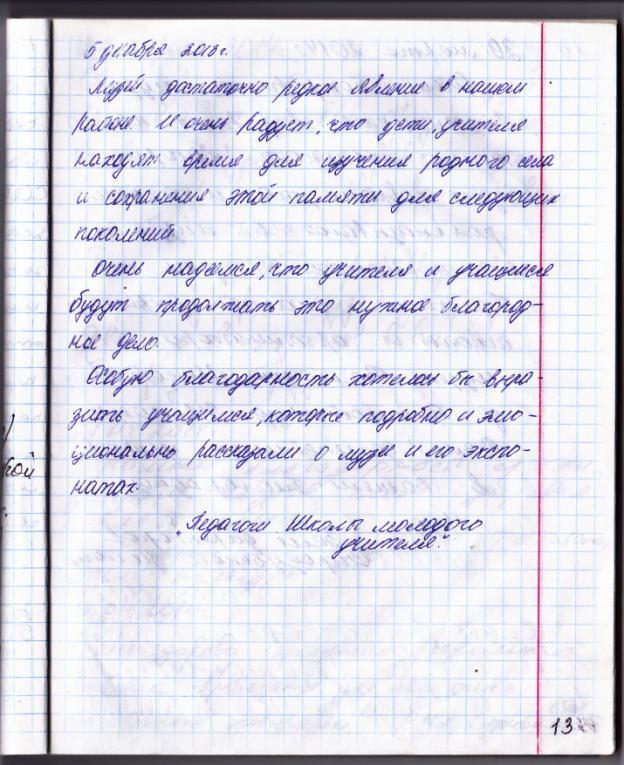 5 декабря 2013г.
Музей достаточно редкое явление в нашем
районе. И очень радует, что дети, учителя
находят время для изучения родного села
и сохранения этой памяти для следующих
поколений.
Очень надеемся, что учителя и учащиеся
будут продолжать это нужное благород-
ное дело.
Особую благодарность хотелось бы выра-
зить учащимся, которые подробно и эмо-
ционально рассказали о музее и его экспо-
натах.
"Педагоги Школы молодого
учителя".
13